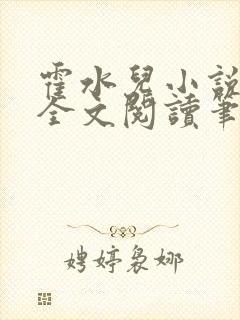 霍水兒小說
全文閱讀筆
娉婷裊娜